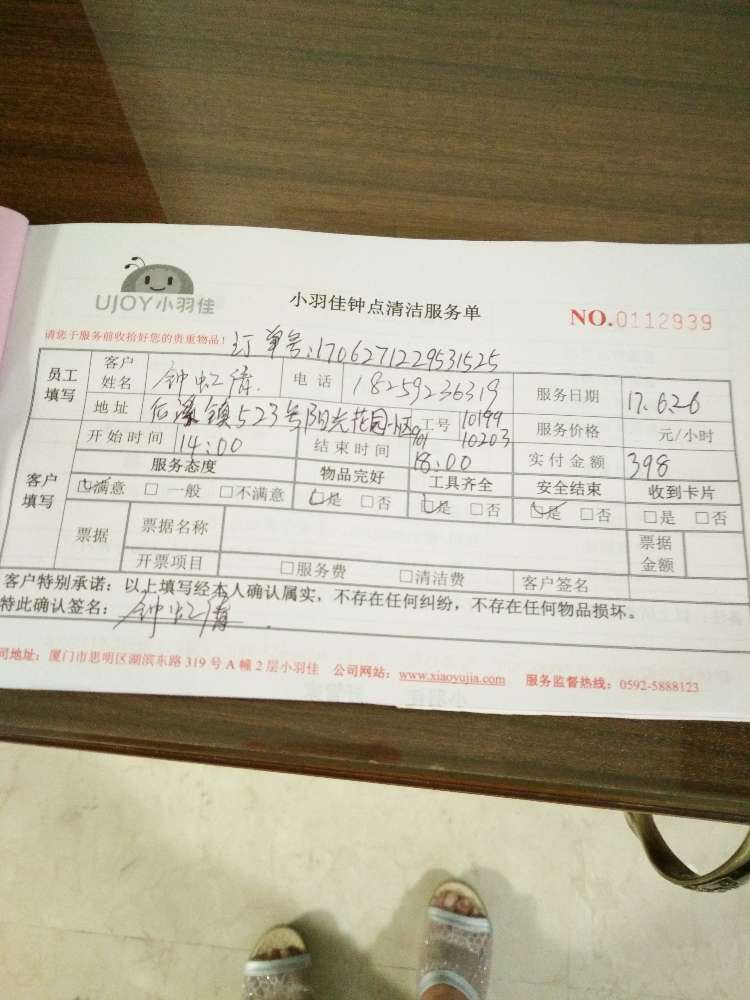 UJOY小羽佳
小羽佳钟点清洁服务单
NO.0112939
请您于服务前收拾好您的贵重物品！
订单号:1706271229531525
员工填写 客户姓名 钟虹 电话 18259236319 服务日期 17.6.26
地址 后溪镇523号阳光花园 901 工号 10199 10203 服务价格 元/小时
开始时间 14:00 结束时间 18:00 实付金额 398
客户填写 服务态度 物品完好 工具齐全 安全结束 收到卡片
☑满意 □一般 □不满意 ☑是 □否 ☑是 □否 ☑是 □否 □是 □否
票据 票据名称 票据金额
开票项目 □服务费 □清洁费 客户签名
客户特别承诺：以上填写经本人确认属实，不存在任何纠纷，不存在任何物品损坏。
特此确认签名：钟虹
司地址：厦门市思明区湖滨东路 319 号 A 幢 2 层小羽佳 公司网站：www.xiaoyujia.com 服务监督热线：0592-5888123